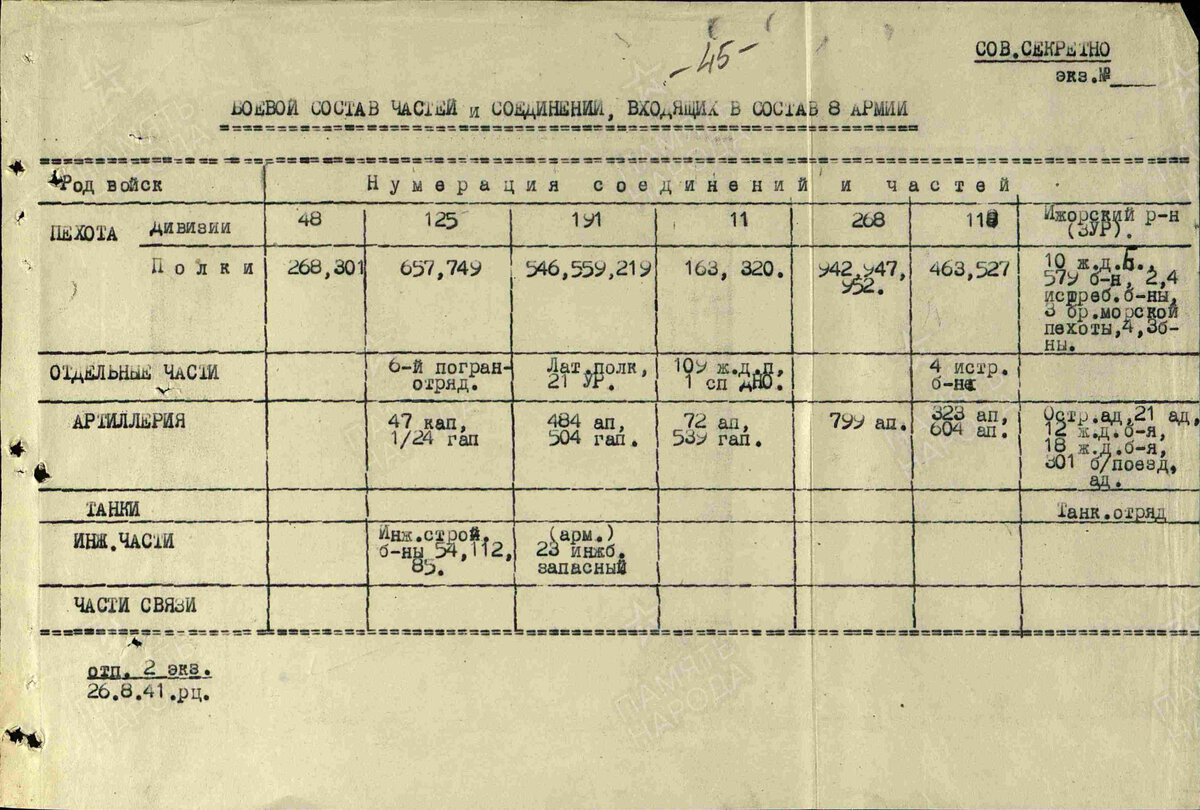 -45-
СОВ.СЕКРЕТНО
экз.№
БОЕВОЙ СОСТАВ ЧАСТЕЙ и СОЕДИНЕНИЙ, ВХОДЯЩИХ В СОСТАВ 8 АРМИИ
Род войск Нумерация соединений и частей
ПЕХОТА Дивизии 48 125 191 11 268 118 Ижорский р-н
(ЗУР).
Полки 268,301 657,749 546,559,219 163, 320. 942,947, 463,527 10 ж.д.Б.,
952. 579 б-н, 2,4
истреб.б-ны,
3 бр.морской
пехоты,4,3б-
ны.
ОТДЕЛЬНЫЕ ЧАСТИ 6-й погран- Лат.полк, 109 ж.д.п, 4 истр.
отряд. 21 УР. 1 сп ДНО. б-на
АРТИЛЛЕРИЯ 47 кап, 484 ап, 72 ап, 799 ап. 323 ап, Остр.ад,21 ад,
1/24 гап 504 гап. 539 гап. 604 ап. 12 ж.д.б-я,
18 ж.д.б-я,
301 б/поезд,
ад.
ТАНКИ Танк.отряд
ИНЖ.ЧАСТИ Инж.строй. (арм.)
б-ны 54,112, 23 инжб.
85. запасный
ЧАСТИ СВЯЗИ
отп. 2 экз.
26.8.41.рц.
ПАМЯТЬ
НАРОДА